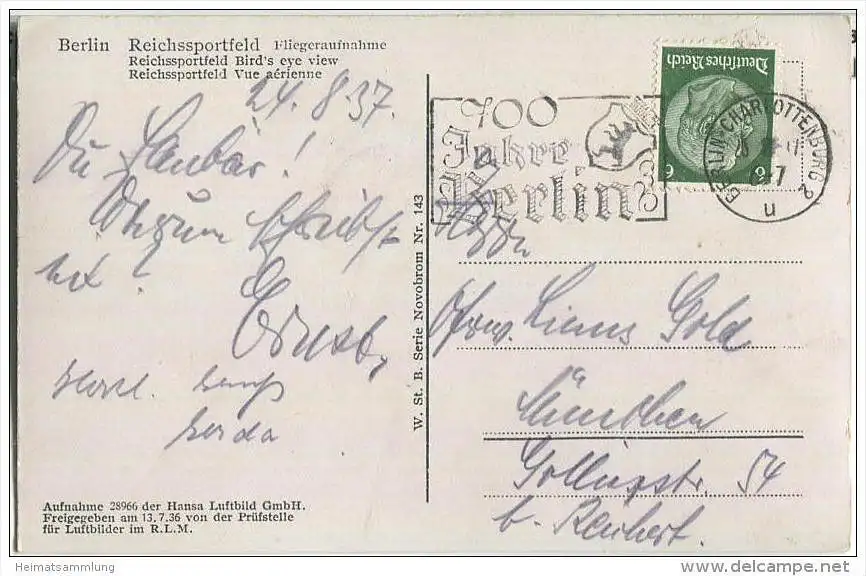 Berlin Reichssportfeld Fliegeraufnahme
Reichssportfeld Bird's eye view
Reichssportfeld Vue aérienne
24.8.37.
Du
Warum schreibst
?
Ernst
Gerda
Aufnahme 28966 der Hansa Luftbild GmbH.
Freigegeben am 13.7.36 von der Prüfstelle
für Luftbilder im R.L.M.
W. St. B. Serie Novobrom Nr. 143
700
Jahre
Berlin
Deutsches Reich
6 6
BERLIN-CHARLOTTENBURG 2
u
Gold
München
54
b. Reichert.
Heimatsammlung
delcampe.net